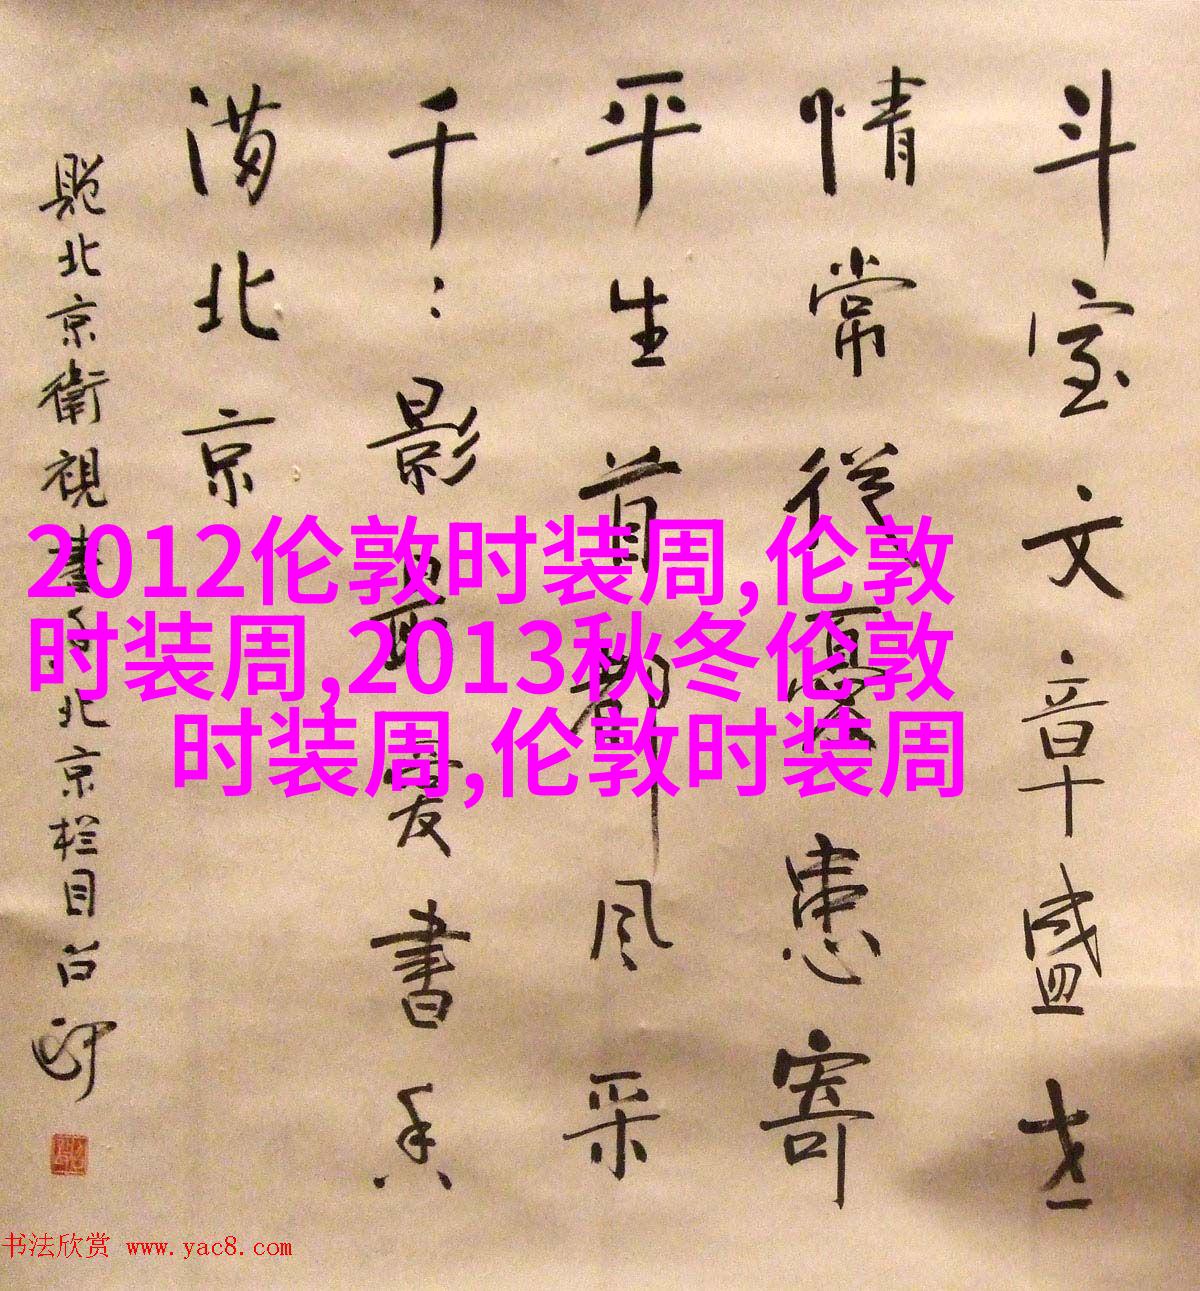 斗室文章盛世
情常從憂患寄
平生首都风采
千〻影最爱書香
满北京
题北京衛視書香北京栏目
2012伦敦时装周,伦敦
时装周,2013秋冬伦敦
时装周,伦敦时装周
书法欣赏 www.yac8.com